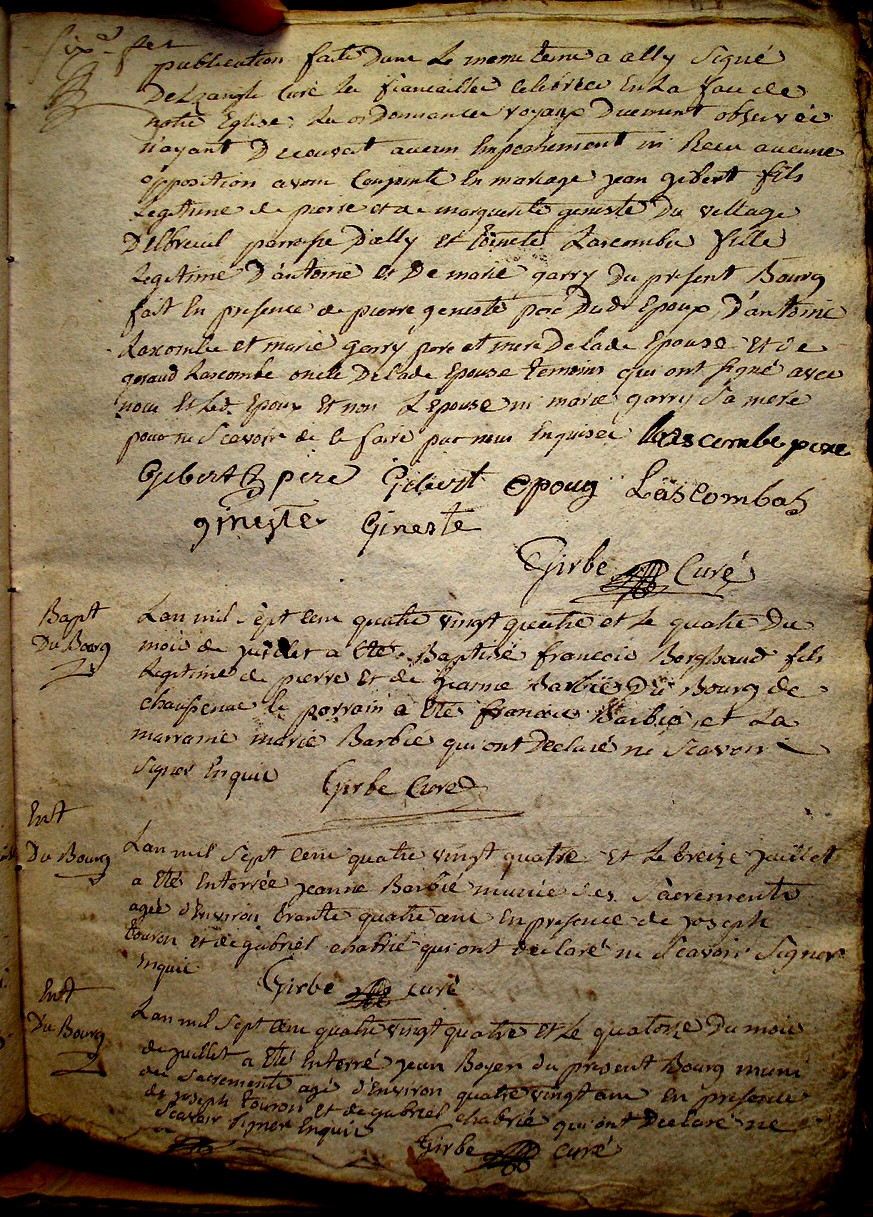 Six.e fet
publication faite dans le meme terme a ally signé
Delzangle Curé les fiancailles celebrées En La face de
notre Eglise, les ordonnances royaux Duement observées
n'ayant Decouvert aucun Empechement ni Receu aucune
opposition avons Conjoints En mariage jean gibert fils
Legitime de pierre et de marguerite geneste Du village
Delbreuil parroisse D'ally et toinete Lascombe fille
Legitime D'antoine et De marie garry Du present Bourg
fait En presence de pierre geneste pere Dudt Epoux, D'antoine
Lascombe et marie garry pere et mere De lade Epouse Et de
geraud Lascombe oncle De lade Epouse temoins qui ont signé avec
nous Et Led. Epoux Et non L'Epouse ni marie garry Sa mere
pour ne Scavoir de le faire par nous Enquises Lascombe pere
Gibert pere Gibert epoug Lascombas
gineste Gineste
Girbe Curé
Bapt
Du Bourg
Lan mil Sept Cens quatre vingt quatre et Le quatre Du
mois de juillet a Eté Baptisé francois Borghaud fils
Legitime de pierre Et de jeanne Barbié Du Bourg de
chaussenac le parrain a Eté francois Barbié, et La
marraine marie Barbie qui ont Declaré ne Scavoir
Signer Enquis Girbe Curé
Ent
Du Bourg
Lan mil Sept Cens quatre vingt quatre Et Le treize juillet
a Eté Enterrée jeanne Barbié munie des Sacrements
agée d'Environ trante quatre ans En presence de joseph
touron et de gabriel chabrié qui ont declaré ne Scavoir Signer
Enquis Girbe curé
Ent
Du Bourg
Lan mil Sept Cens quatre vingt quatre et Le quatorze Du mois
de juillet a Eté Enterré jean Boyer du present Bourg muni
des Sacrements agé d'Environ quatre vingt ans En presence
de joseph touron Et de gabriel chabrié qui ont Declaré ne
Scavoir Signer Enquis Girbe Curé